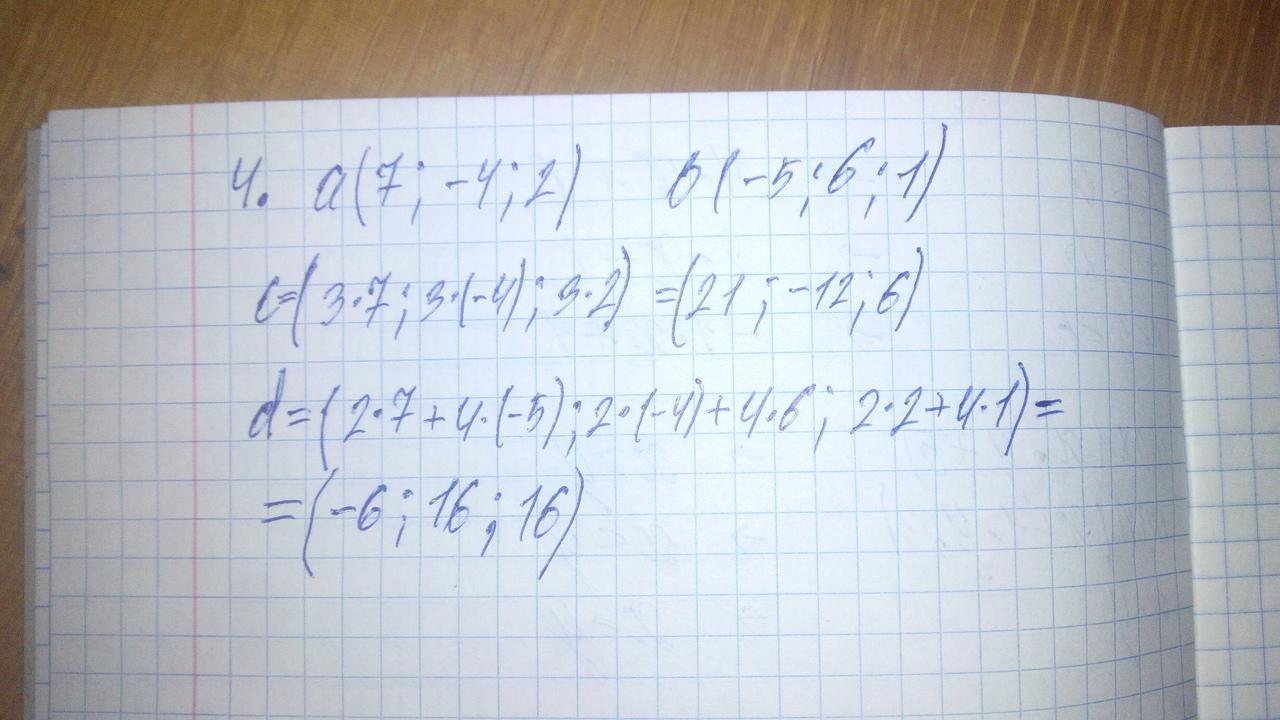 4. a(7; -4; 2) в(-5; 6; 1)
c=(3·7; 3·(-4); 3·2) =(21; -12; 6)
d=(2·7+4·(-5); 2·(-4)+4·6; 2·2+4·1)=
=(-6; 16; 16)